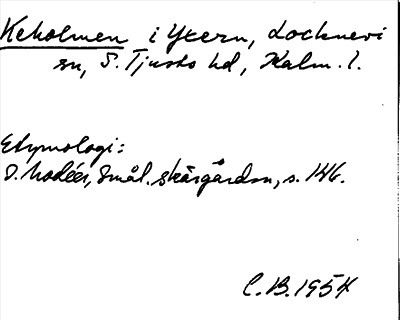 Keholmen i Yxern, Locknevi
sn, S. Tjusts hd, Kalm. l.
Etymologi:
I. Modéer, Smål. skärgårdsn, s. 146.
C.B. 1954